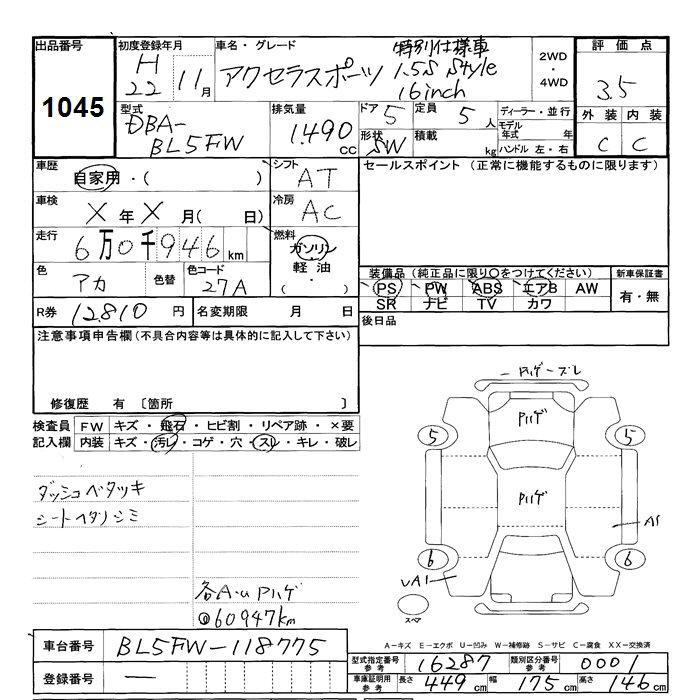 出品番号
1045
初度登録年月
H22 11月
車名・グレード
アクセラスポーツ
特別仕様車
1.5S Style
16inch
2WD
・
4WD
評価点
3.5
外装 内装
C C
型式
DBA-
BL5FW
排気量
1.490 CC
ドア 5
形状 SW
定員 5人
積載 kg
ディーラー・並行
モデル年式 年
ハンドル 左・右
車歴
自家用・( )
シフト AT
セールスポイント (正常に機能するものに限ります)
車検
X年X月( 日)
冷房 AC
走行
6万0千946km
燃料
ガソリン
軽油
・( )
色 アカ
色替
色コード 27A
装備品(純正品に限り○をつけてください)
PS PW ABS エアB AW
SR ナビ TV カワ
新車保証書
有・無
R券 12810円
名変期限 月 日
後日品
注意事項申告欄(不具合内容等は具体的に記入して下さい)
修復歴 有 〔箇所 〕
検査員記入欄
FW キズ・飛石・ヒビ割・リペア跡・×要
内装 キズ・汚レ・コゲ・穴・スレ・キレ・破レ
ダッシュベタツキ
シートヘタリシミ
各A・u Pハゲ
60947km
Pハゲ・ズレ
Pハゲ
5 5
Pハゲ
A1
6 6
UA1
スペア
A-キズ E-エクボ U-凹み W-補修跡 S-サビ C-腐食 XX-交換済
車台番号 BL5FW-118775
登録番号 —
型式指定番号 参考 16287
類別区分番号 参考 0001
車庫証明用 参考 長さ 449cm 幅 175cm 高さ 146cm